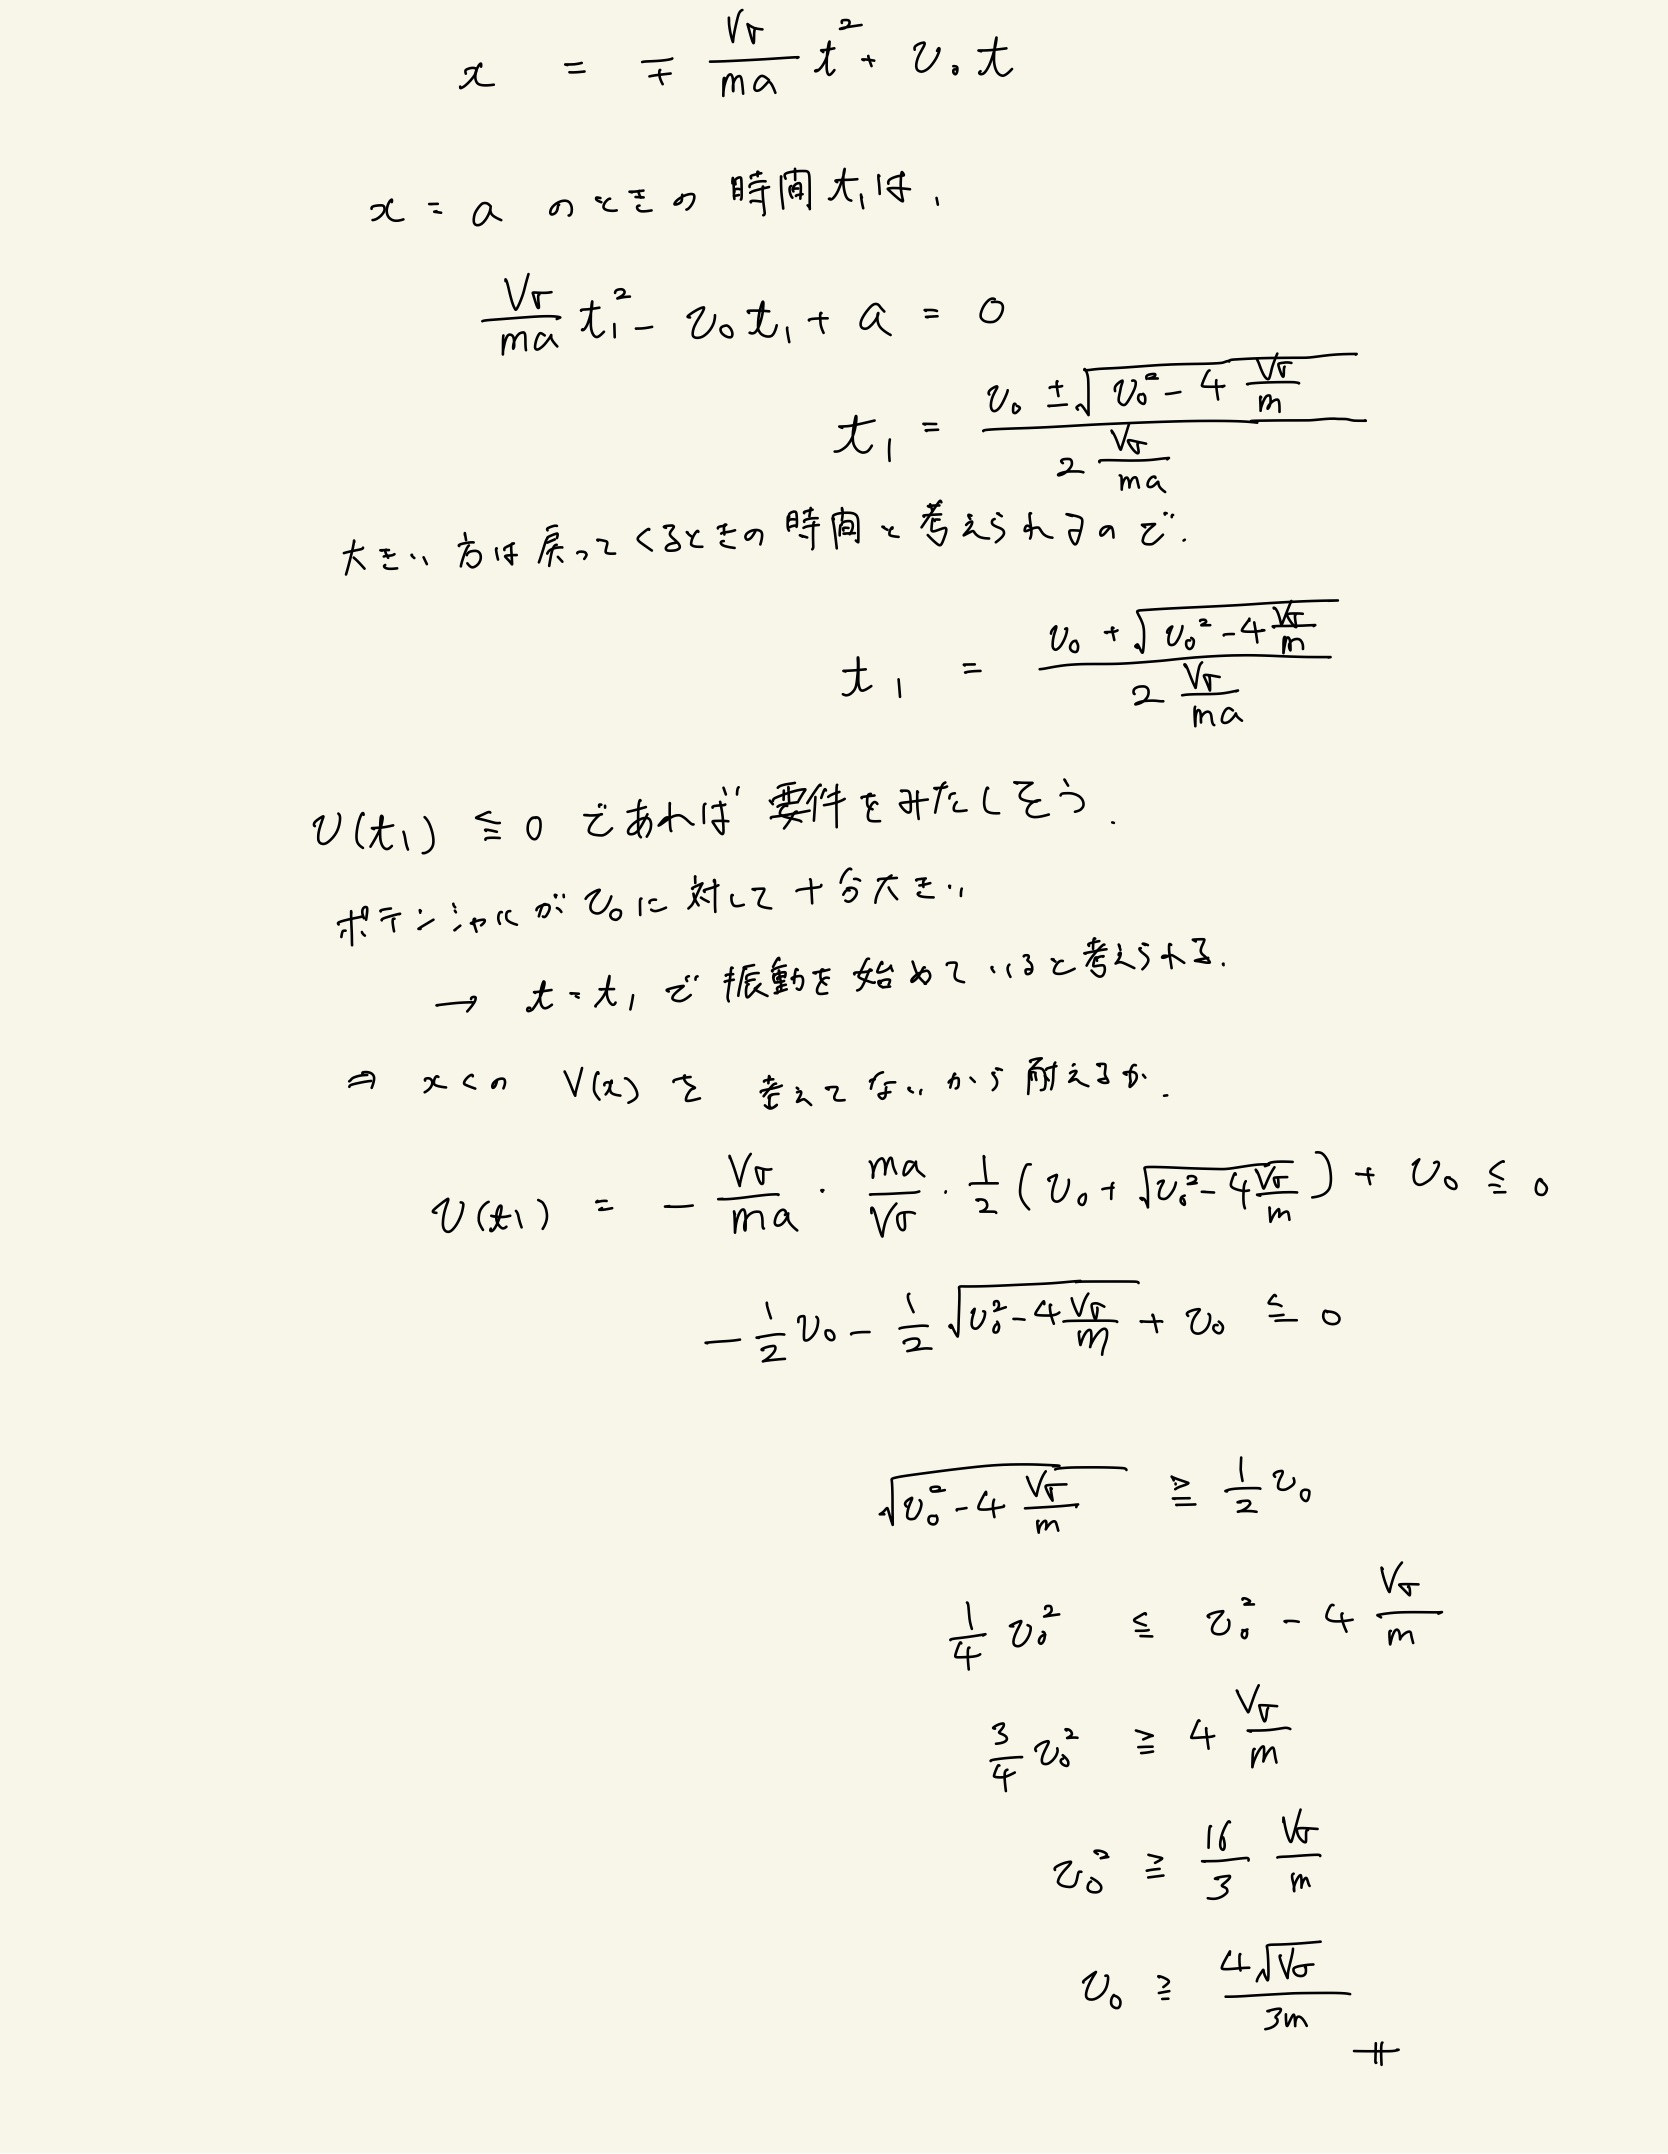 x = ∓ Vσ/ma t² + v₀t
x = a のときの時間t₁は,
Vσ/ma t₁² - v₀t₁ + a = 0
t₁ = (v₀ ± √(v₀² - 4 Vσ/m)) / (2 Vσ/ma)
大きい方は戻ってくるときの時間と考えられるので.
t₁ = (v₀ + √(v₀² - 4 Vσ/m)) / (2 Vσ/ma)
v(t₁) ≦ 0 であれば要件をみたしそう.
ポテンシャルがv₀に対して十分大きい
→ t = t₁ で振動を始めていると考えられる.
⇒ x<の V(x) を 考えてないから耐えるか.
v(t₁) = - Vσ/ma · ma/Vσ · 1/2 (v₀ + √(v₀² - 4 Vσ/m)) + v₀ ≦ 0
- 1/2 v₀ - 1/2 √(v₀² - 4 Vσ/m) + v₀ ≦ 0
√(v₀² - 4 Vσ/m) ≧ 1/2 v₀
1/4 v₀² ≦ v₀² - 4 Vσ/m
3/4 v₀² ≧ 4 Vσ/m
v₀² ≧ 16/3 Vσ/m
v₀ ≧ 4√Vσ / 3m